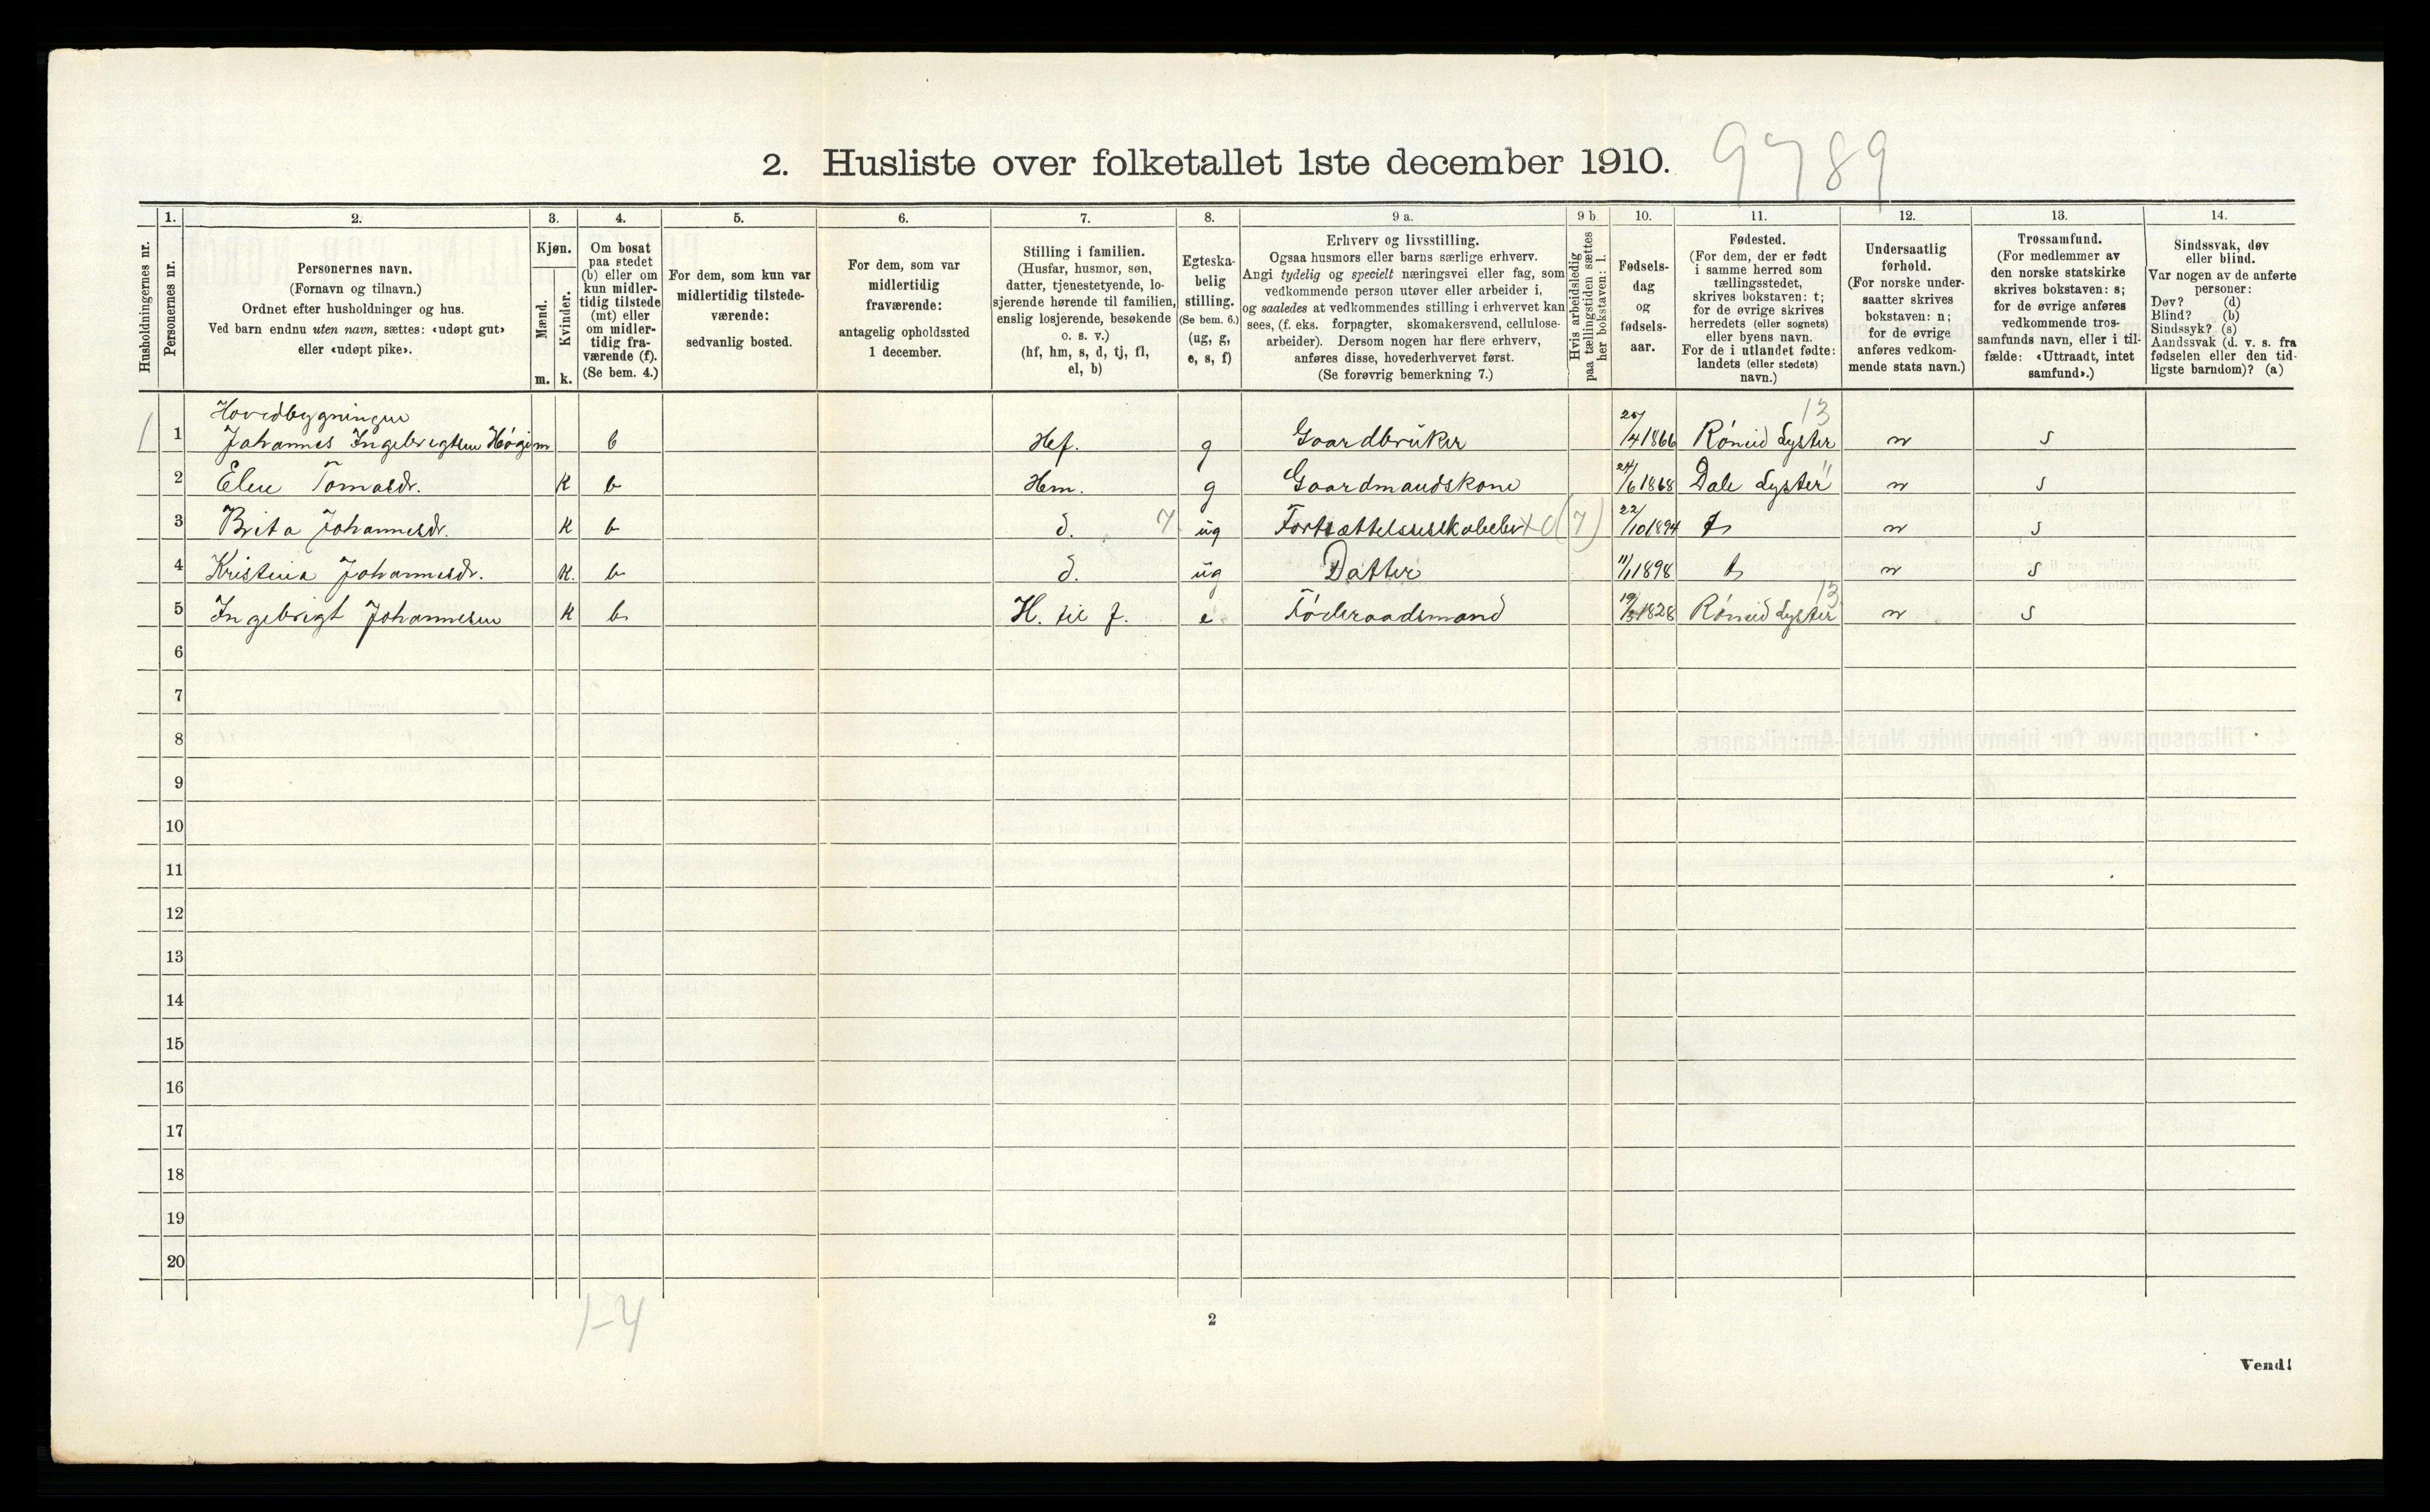 2. Husliste over folketallet 1ste december 1910. 9789
1. 2. 3. 4. 5. 6. 7. 8. 9 a. 9 b 10. 11. 12. 13. 14.
Husholdningernes nr.
Personernes nr.
Personernes navn.
(Fornavn og tilnavn.)
Ordnet efter husholdninger og hus.
Ved barn endnu uten navn, sættes: «udøpt gut»
eller «udøpt pike».
Kjøn.
Mænd.
Kvinder.
m. k.
Om bosat
paa stedet
(b) eller om
kun midler-
tidig tilstede
(mt) eller
om midler-
tidig fra-
værende (f).
(Se bem. 4.)
For dem, som kun var
midlertidig tilstede-
værende:
sedvanlig bosted.
For dem, som var
midlertidig
fraværende:
antagelig opholdssted
1 december.
Stilling i familien.
(Husfar, husmor, søn,
datter, tjenestetyende, lo-
sjerende hørende til familien,
enslig losjerende, besøkende
o. s. v.)
(hf, hm, s, d, tj, fl,
el, b)
Egteska-
belig
stilling.
(Se bem. 6.)
(ug, g,
e, s, f)
Erhverv og livsstilling.
Ogsaa husmors eller barns særlige erhverv.
Angi tydelig og specielt næringsvei eller fag, som
vedkommende person utøver eller arbeider i,
og saaledes at vedkommendes stilling i erhvervet kan
sees, (f. eks. forpagter, skomakersvend, cellulose-
arbeider). Dersom nogen har flere erhverv,
anføres disse, hovederhvervet først.
(Se forøvrig bemerkning 7.)
Hvis arbeidsledig
paa tællingstiden sættes
her bokstaven: l.
Fødsels-
dag
og
fødsels-
aar.
Fødested.
(For dem, der er født
i samme herred som
tællingsstedet,
skrives bokstaven: t;
for de øvrige skrives
herredets (eller sognets)
eller byens navn.
For de i utlandet fødte:
landets (eller stedets)
navn.)
Undersaatlig
forhold.
(For norske under-
saatter skrives
bokstaven: n;
for de øvrige
anføres vedkom-
mende stats navn.)
Trossamfund.
(For medlemmer av
den norske statskirke
skrives bokstaven: s;
for de øvrige anføres
vedkommende tros-
samfunds navn, eller i til-
fælde: «Uttraadt, intet
samfund».)
Sindssvak, døv
eller blind.
Var nogen av de anførte
personer:
Døv? (d)
Blind? (b)
Sindssyk? (s)
Aandssvak (d. v. s. fra
fødselen eller den tid-
ligste barndom)? (a)
Hovedbygningen 13
1 1 Johannes Ingebrigtsen m b Hef. g Gaardbruker /4 1866 Rôneid Lyster n s
2 Elen Tomasdr. K b Hem. g Gaardmandskone 24/6 1868 Dale Lyster n s
3 Brita Johannesdr. K b d. 7 ug (7) 22/10 1894 t n s
4 Kristina Johannesdr. K. b d. ug Datter 11/1 1898 t n s
5 Ingebrigt Johannesen K b H. til f. e Føderaadsmand 1828 Rôneid Lyster 13 n s
6
7
8
9
10
11
12
13
14
15
16
17
18
19
20
1-4
2
Vend!